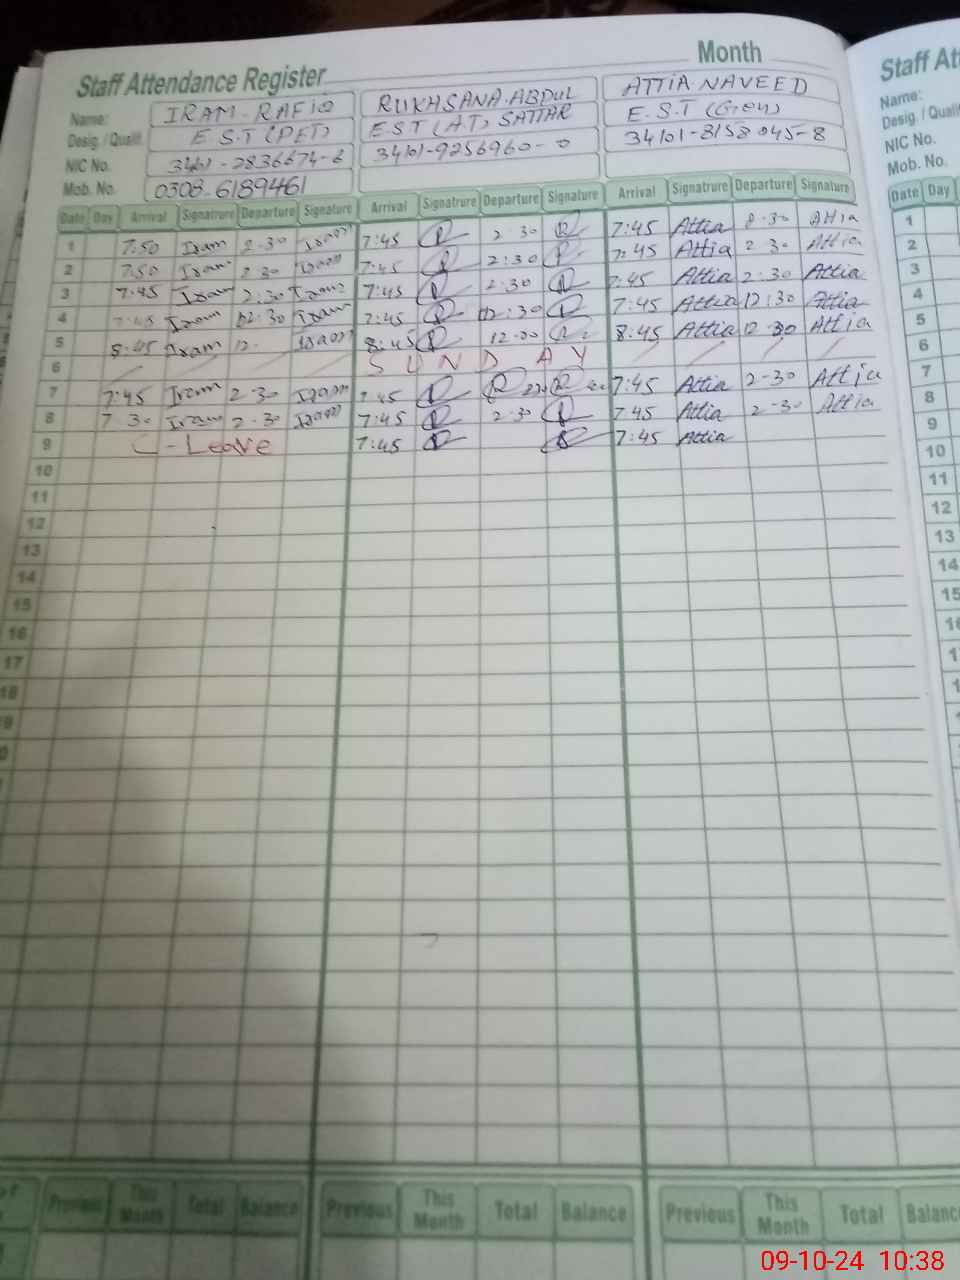 Staff Attendance Register Month
Name: IRAM RAFIQ RUKHSANA ABDUL ATTIA NAVEED
Desig. / Qualif. E.S.T (PET) E.S.T (AT) SATTAR E.S.T (Gen)
NIC No. 34101-9256960-0 34101-8158045-8
Mob. No. 0308-6189461
Date Day Arrival Signatrure Departure Signature Arrival Signatrure Departure Signature Arrival Signatrure Departure Signature
1 7:50 Iram 2-30 Iram 7:45 2 30 7:45 Attia 2-30 Attia
2 7:50 Iram 2 30 Iram 7:45 2:30 7:45 Attia 2 30 Attia
3 7:45 Iram 2:30 Iram 7:45 2:30 7:45 Attia 2:30 Attia
4 7:45 Iram 12:30 Iram 7:45 12:30 7:45 Attia 12:30 Attia
5 8:45 Iram 12. Iram 8:45 8:45 Attia 12 30 Attia
6 SUNDAY
7 7:45 Iram 2-30 Iram 7:45 7:45 Attia 2-30 Attia
8 7 30 Iram 2-30 Iram 7:45 2-30 7:45 Attia 2-30 Attia
9 C-Leave 7:45 7:45 Attia
10
11
12
13
14
15
16
17
18
Previous This Month Total Balance Previous This Month Total Balance Previous This Month Total Balance
Staff At
Name:
Desig. / Qualif
NIC No.
Mob. No.
Date Day
1
2
3
4
5
6
7
8
9
10
11
12
13
14
15
09-10-24 10:38